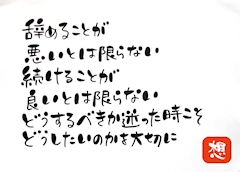 辞めることが
悪いとは限らない
続けることが
良いとは限らない
どうするべきか迷った時こそ
どうしたいのかを大切に
想